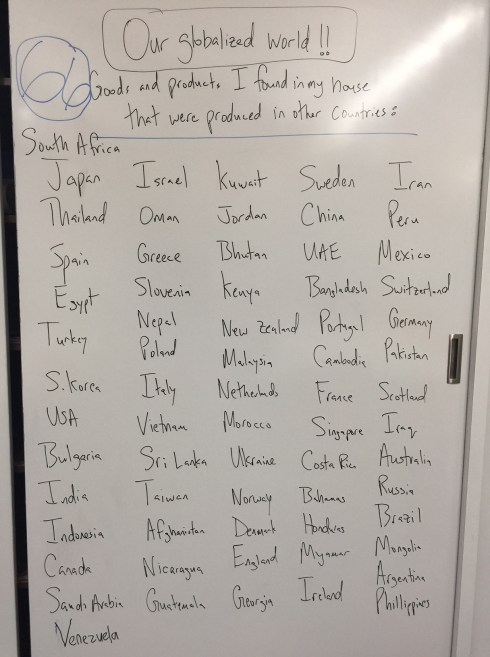 Our globalized world!!
66
Goods and products I found in my house
that were produced in other countries:
South Africa
Japan Israel Kuwait Sweden Iran
Thailand Oman Jordan China Peru
Spain Greece Bhutan UAE Mexico
Egypt Slovenia Kenya Bangladesh Switzerland
Turkey Nepal New Zealand Portugal Germany
Poland Malaysia Cambodia Pakistan
S. Korea Italy Netherlands France Scotland
USA Vietnam Morocco Singapore Iraq
Bulgaria Sri Lanka Ukraine Costa Rica Australia
India Taiwan Norway Bahamas Russia
Indonesia Afghanistan Denmark Honduras Brazil
Canada Nicaragua England Myanmar Mongolia
Saudi Arabia Guatemala Georgia Ireland Argentina
Venezuela Phillippines